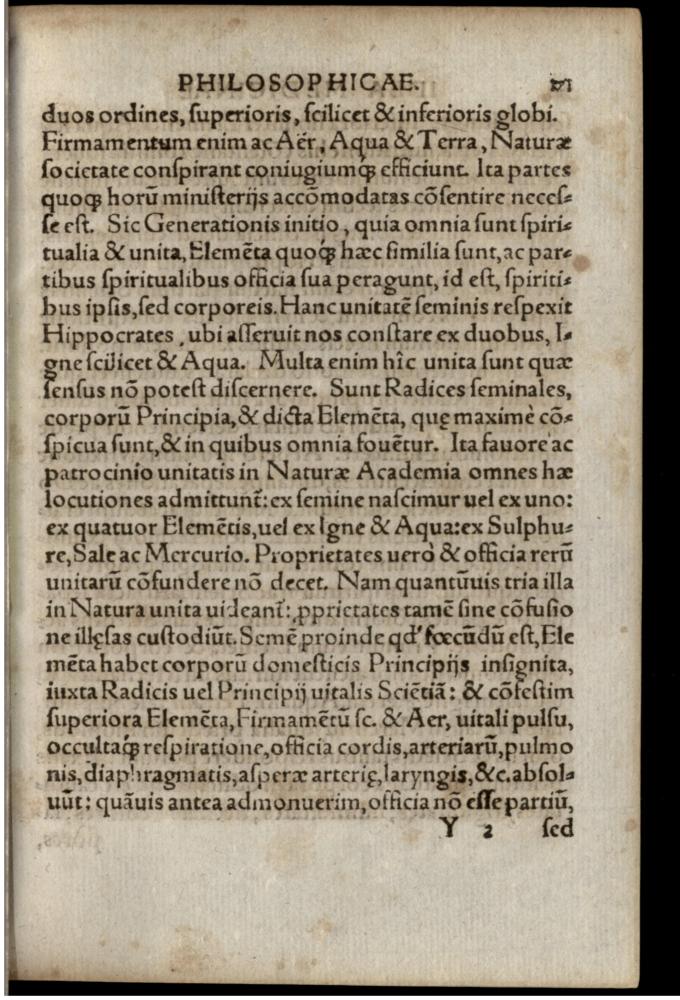 PHILOSOPHICAE. 171
duos ordines, ſuperioris, ſcilicet & inferioris globi.
Firmamentum enim ac Aër, Aqua & Terra, Naturæ
ſocietate conſpirant coniugiumqꝫ efficiunt. Ita partes
quoqꝫ horũ miniſterijs accõmodatas cõſentire neceſ⸗
ſe eſt. Sic Generationis initio, quia omnia ſunt ſpiri⸗
tualia & unita, Elemẽta quoqꝫ hæc ſimilia ſunt, ac par⸗
tibus ſpiritualibus officia ſua peragunt, id eſt, ſpiriti⸗
bus ipſis, ſed corporeis. Hanc unitatẽ ſeminis reſpexit
Hippocrates, ubi aſſeruit nos conſtare ex duobus, I⸗
gne ſcilicet & Aqua. Multa enim hîc unita ſunt quæ
ſenſus nõ poteſt diſcernere. Sunt Radices ſeminales,
corporũ Principia, & dicta Elemẽta, quę maximè cõ⸗
ſpicua ſunt, & in quibus omnia fouẽtur. Ita fauore ac
patrocinio unitatis in Naturæ Academia omnes hæ
locutiones admittunt᷑: ex ſemine naſcimur uel ex uno:
ex quatuor Elemẽtis, uel ex Igne & Aqua: ex Sulphu⸗
re, Sale ac Mercurio. Proprietates uerò & officia rerũ
unitarũ cõfundere nõ decet. Nam quantũuis tria illa
in Natura unita uideant᷑: ꝓprietates tamẽ ſine cõfuſio
ne illęſas cuſtodiũt. Semẽ proinde qd' fœcũdũ eſt, Ele
mẽta habet corporũ domeſticis Principijs inſignita,
iuxta Radicis uel Principij uitalis Sciẽtiã: & cõfeſtim
ſuperiora Elemẽta, Firmamẽtũ ſc. & Aer, uitali pulſu,
occultaqꝫ reſpiratione, officia cordis, arteriarũ, pulmo
nis, diaphragmatis, aſperæ arterię, laryngis, &c. abſol⸗
uũt: quãuis antea admonuerim, officia nõ eſſe partiũ,
Y 2 ſed